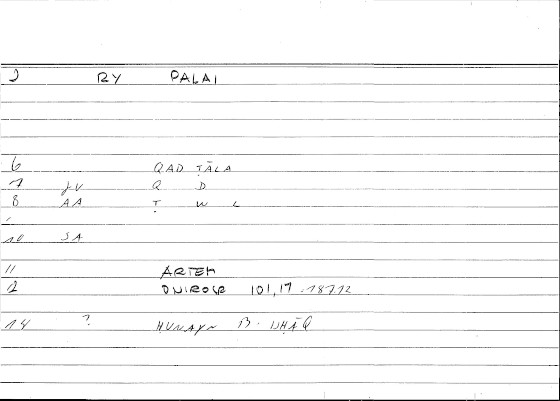 2 RY PALAI
6 QAD ṬĀLA
7 JV Q D
8 AA Ṭ W L
10 SA
11 ARTEM
12 ONIROCR 101,17
14 ? HUNAYN B. ISHĀQ